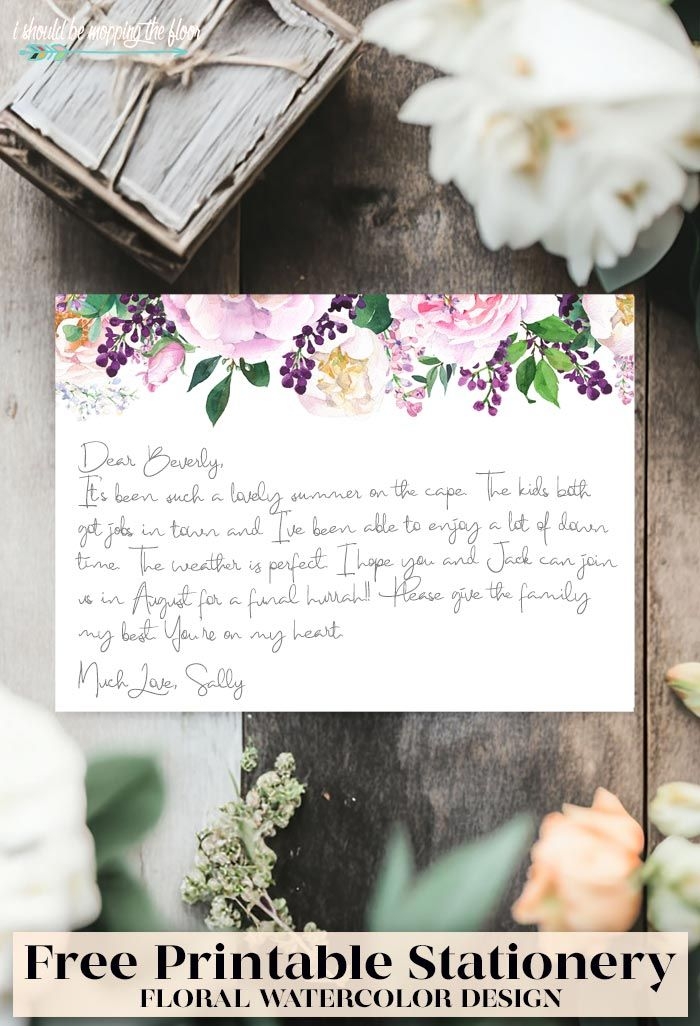 i should be mopping the floor
Dear Beverly,
It's been such a lovely summer on the cape. The kids both
got jobs in town and I've been able to enjoy a lot of down
time. The weather is perfect. I hope you and Jack can join
us in August for a funal hurrah!! Please give the family
my best. You're on my heart.
Much Love, Sally
Free Printable Stationery
FLORAL WATERCOLOR DESIGN